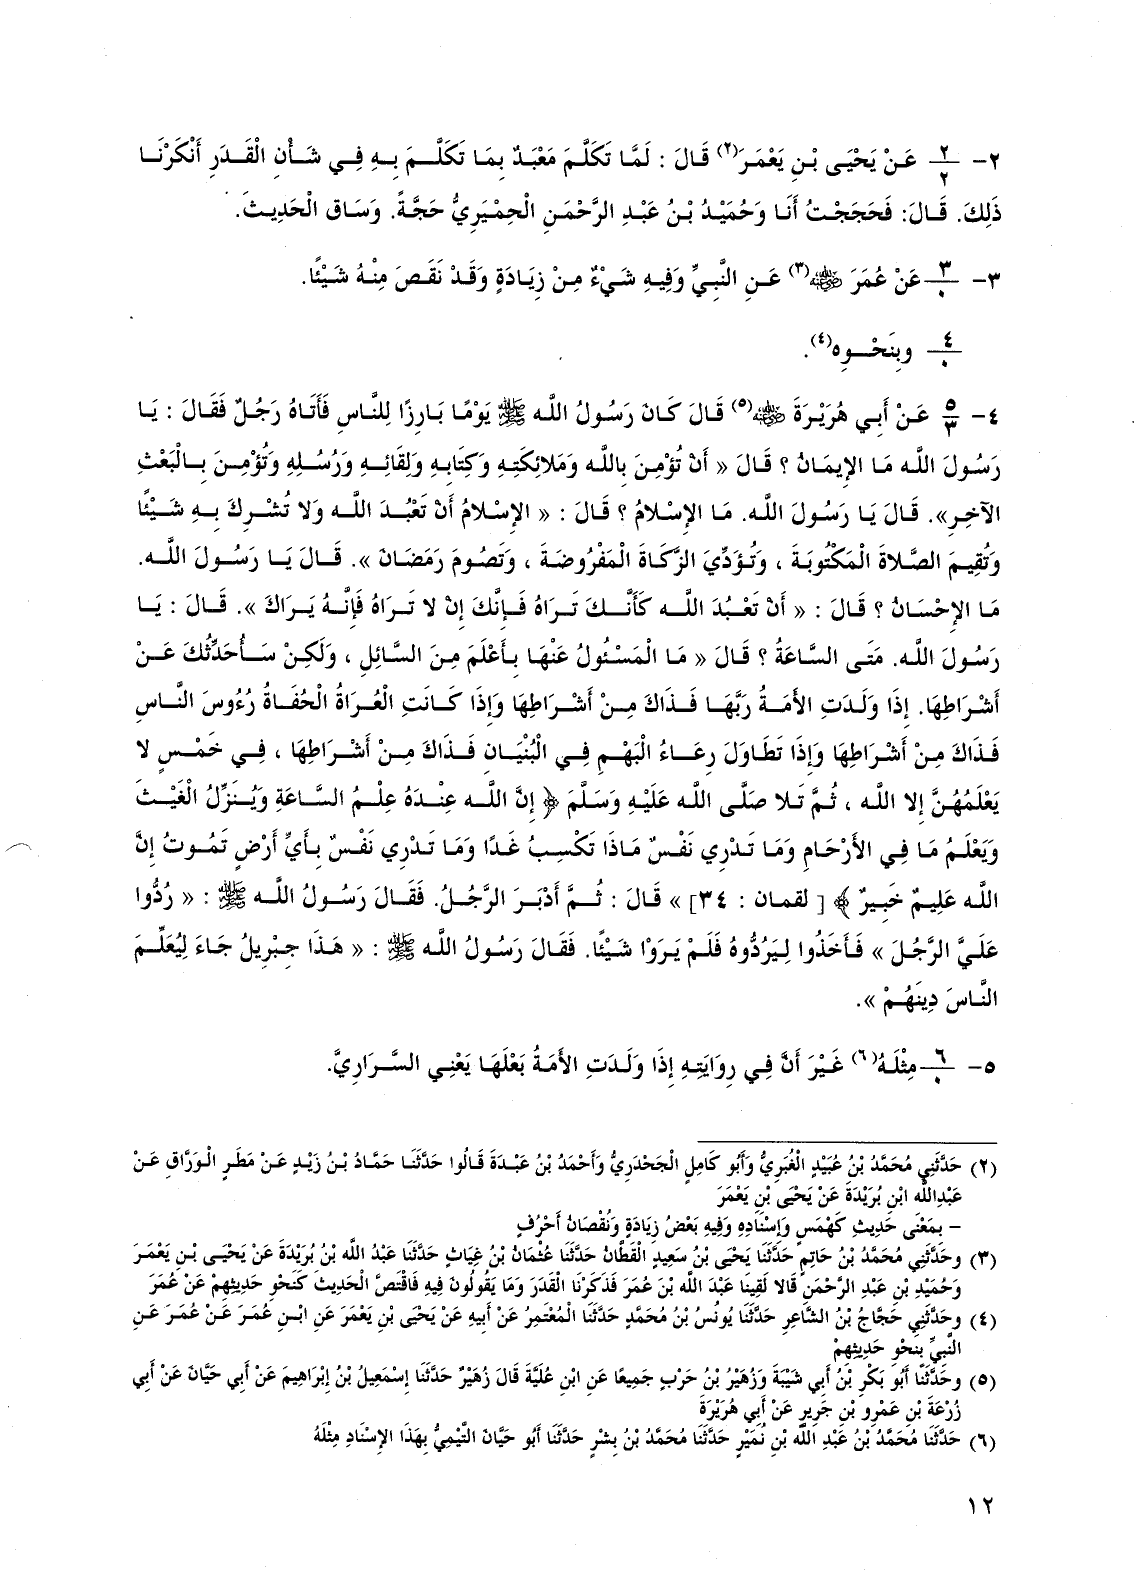 ٢- ٢/٢ عَنْ يَحْيَى بْنِ يَعْمَرَ(٢) قَالَ : لَمَّا تَكَلَّمَ مَعْبَدٌ بِمَا تَكَلَّمَ بِهِ فِي شَأْنِ الْقَدَرِ أَنْكَرْنَا
ذَلِكَ. قَالَ: فَحَجَجْتُ أَنَا وَحُمَيْدُ بْنُ عَبْدِ الرَّحْمَنِ الْحِمْيَرِيُّ حَجَّةً. وَسَاق الْحَدِيثَ.
٣- ٣/٠ عَنْ عُمَرَ ﷺ(٣) عَنِ النَّبِيِّ وَفِيهِ شَيْءٌ مِنْ زِيَادَةٍ وَقَدْ نَقَصَ مِنْهُ شَيْئًا.
٤/٠ وبِنَحْوِه(٤).
٤- ٥/٣ عَنْ أَبِي هُرَيْرَةَ ﷺ(٥) قَالَ كَانَ رَسُولُ اللَّه ﷺ يَوْمًا بَارِزًا لِلنَّاسِ فَأَتَاهُ رَجُلٌ فَقَالَ : يَا
رَسُولَ اللَّه مَا الإِيمَانُ ؟ قَالَ « أَنْ تُؤْمِنَ بِاللَّه وَمَلائِكَتِهِ وَكِتَابِهِ وَلِقَائِهِ وَرُسُلِهِ وَتُؤْمِنَ بِالْبَعْثِ
الآخِرِ». قَالَ يَا رَسُولَ اللَّه. مَا الإِسْلامُ ؟ قَالَ : « الإِسْلامُ أَنْ تَعْبُدَ اللَّه وَلا تُشْرِكَ بِهِ شَيْئًا
وَتُقِيمَ الصَّلاةَ الْمَكْتُوبَةَ ، وَتُؤَدِّيَ الزَّكَاةَ الْمَفْرُوضَةَ ، وَتَصُومَ رَمَضَانَ ». قَالَ يَا رَسُولَ اللَّه.
مَا الإِحْسَانُ ؟ قَالَ : « أَنْ تَعْبُدَ اللَّه كَأَنَّكَ تَرَاهُ فَإِنَّكَ إِنْ لا تَرَاهُ فَإِنَّهُ يَرَاكَ ». قَالَ : يَا
رَسُولَ اللَّه. مَتَى السَّاعَةُ ؟ قَالَ « مَا الْمَسْئُولُ عَنْهَا بِأَعْلَمَ مِنَ السَّائِلِ ، وَلَكِنْ سَأُحَدِّثُكَ عَنْ
أَشْرَاطِهَا. إِذَا وَلَدَتِ الأَمَةُ رَبَّهَا فَذَاكَ مِنْ أَشْرَاطِهَا وَإِذَا كَانَتِ الْعُرَاةُ الْحُفَاةُ رُءُوسَ النَّاسِ
فَذَاكَ مِنْ أَشْرَاطِهَا وَإِذَا تَطَاوَلَ رِعَاءُ الْبَهْمِ فِي الْبُنْيَانِ فَذَاكَ مِنْ أَشْرَاطِهَا ، فِي خَمْسٍ لا
يَعْلَمُهُنَّ إِلا اللَّه ، ثُمَّ تَلا صَلَّى اللَّه عَلَيْهِ وَسَلَّمَ ﴿ إِنَّ اللَّه عِنْدَهُ عِلْمُ السَّاعَةِ وَيُنَزِّلُ الْغَيْثَ
وَيَعْلَمُ مَا فِي الأَرْحَامِ وَمَا تَدْرِي نَفْسٌ مَاذَا تَكْسِبُ غَدًا وَمَا تَدْرِي نَفْسٌ بِأَيِّ أَرْضٍ تَمُوتُ إِنَّ
اللَّه عَلِيمٌ خَبِيرٌ ﴾ [ لقمان : ٣٤] » قَالَ : ثُمَّ أَدْبَرَ الرَّجُلُ. فَقَالَ رَسُولُ اللَّه ﷺ : « رُدُّوا
عَلَيَّ الرَّجُلَ » فَأَخَذُوا لِيَرُدُّوهُ فَلَمْ يَرَوْا شَيْئًا. فَقَالَ رَسُولُ اللَّه ﷺ : « هَذَا جِبْرِيلُ جَاءَ لِيُعَلِّمَ
النَّاسَ دِينَهُمْ ».
٥- ٦/٠ مِثْلَهُ(٦) غَيْرَ أَنَّ فِي رِوَايَتِهِ إِذَا وَلَدَتِ الأَمَةُ بَعْلَهَا يَعْنِي السَّرَارِيَّ.
(٢) حَدَّثَنِي مُحَمَّدُ بْنُ عُبَيْدٍ الْغُبَرِيُّ وَأَبُو كَامِلٍ الْجَحْدَرِيُّ وَأَحْمَدُ بْنُ عَبْدَةَ قَالُوا حَدَّثَنَا حَمَّادُ بْنُ زَيْدٍ عَنْ مَطَرٍ الْوَرَّاقِ عَنْ
عَبْدِاللَّه ابْنِ بُرَيْدَةَ عَنْ يَحْيَى بْنِ يَعْمَرَ
– بِمَعْنَى حَدِيثِ كَهْمَسٍ وَإِسْنَادِهِ وَفِيهِ بَعْضُ زِيَادَةٍ وَنُقْصَانُ أَحْرُفٍ
(٣) وحَدَّثَنِي مُحَمَّدُ بْنُ حَاتِمٍ حَدَّثَنَا يَحْيَى بْنُ سَعِيدٍ الْقَطَّانُ حَدَّثَنَا عُثْمَانُ بْنُ غِيَاثٍ حَدَّثَنَا عَبْدُ اللَّه بْنُ بُرَيْدَةَ عَنْ يَحْيَى بْنِ يَعْمَرَ
وَحُمَيْدِ بْنِ عَبْدِ الرَّحْمَنِ قَالا لَقِينَا عَبْدَ اللَّه بْنَ عُمَرَ فَذَكَرْنَا الْقَدَرَ وَمَا يَقُولُونَ فِيهِ فَاقْتَصَّ الْحَدِيثَ كَنَحْوِ حَدِيثِهِمْ عَنْ عُمَرَ
(٤) وحَدَّثَنِي حَجَّاجُ بْنُ الشَّاعِرِ حَدَّثَنَا يُونُسُ بْنُ مُحَمَّدٍ حَدَّثَنَا الْمُعْتَمِرُ عَنْ أَبِيهِ عَنْ يَحْيَى بْنِ يَعْمَرَ عَنِ ابْنِ عُمَرَ عَنْ عُمَرَ عَنِ
النَّبِيِّ بِنَحْوِ حَدِيثِهِمْ
(٥) وحَدَّثَنَا أَبُو بَكْرِ بْنُ أَبِي شَيْبَةَ وَزُهَيْرُ بْنُ حَرْبٍ جَمِيعًا عَنِ ابْنِ عُلَيَّةَ قَالَ زُهَيْرٌ حَدَّثَنَا إِسْمَعِيلُ بْنُ إِبْرَاهِيمَ عَنْ أَبِي حَيَّانَ عَنْ أَبِي
زُرْعَةَ بْنِ عَمْرِو بْنِ جَرِيرٍ عَنْ أَبِي هُرَيْرَةَ
(٦) حَدَّثَنَا مُحَمَّدُ بْنُ عَبْدِ اللَّه بْنِ نُمَيْرٍ حَدَّثَنَا مُحَمَّدُ بْنُ بِشْرٍ حَدَّثَنَا أَبُو حَيَّانَ التَّيْمِيُّ بِهَذَا الإِسْنَادِ مِثْلَهُ
١٢